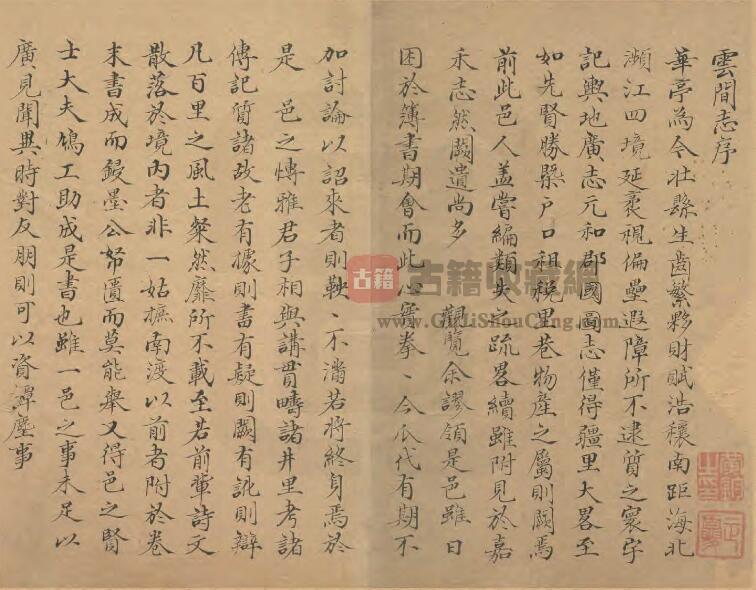 雲間志序
華亭為今壯縣生齒繁夥財賦浩穰南距海北
瀕江四境延袤視偏壘遐障所不逮質之寰宇
記輿地廣志元和郡國圖志僅得疆里大畧至
如先賢勝槩户口租稅里巷物產之屬則闕焉
前此邑人盖嘗編類失之疏畧續雖附見於嘉
禾志然闕遺尚多觀覽余謬領是邑雖日
困於簿書期會而此心實拳丶今瓜代有期不
加討論以詔來者則鞅丶不滿若將終身焉於
是邑之博雅君子相與講貫疇諸井里考諸
傳記質諸故老有據則書有疑則闕有訛則辯
凡百里之風土粲然靡所不載至若前輩詩文
散落於境內者非一姑摭南渡以前者附於卷
末書成而鋟墨公帑匱而莫能舉又得邑之賢
士大夫鳩工助成是書也雖一邑之事未足以
廣見聞異時對友朋則可以資譚麈事
古籍
古籍收藏網
www.GuJiShouCang.com